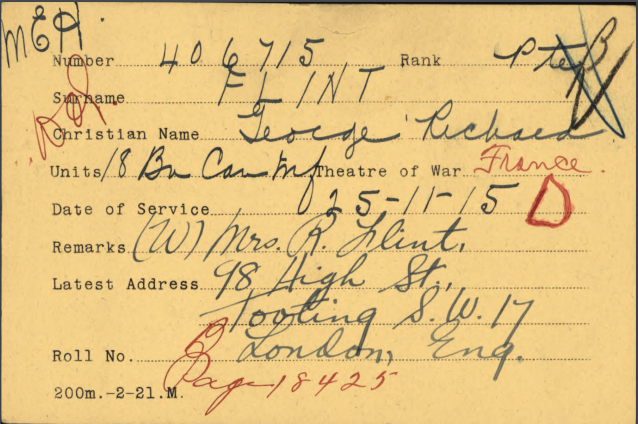 MEH.
Number 406715 Rank Pte B
Surname FLINT
Christian Name George Richard
Units 18 Bn Can Inf Theatre of War France.
Date of Service 25-11-15 D
Remarks (W) Mrs. R. Flint,
Latest Address 98 High St.,
Tooting S.W. 17
Roll No. B London, Eng.
200m.-2-21.M. Page 18425